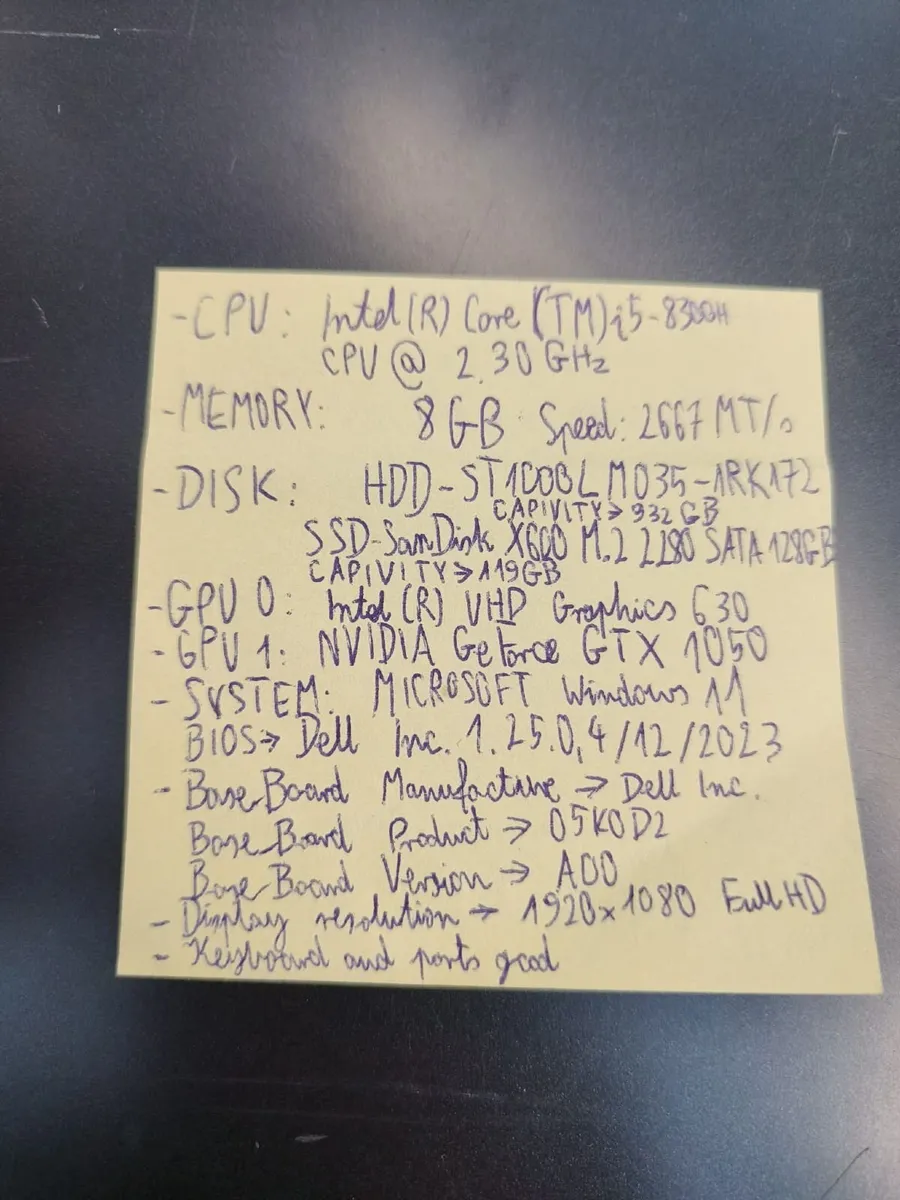 -CPU: Intel(R) Core (TM) i5-8300H
CPU @ 2.30 GHz
-MEMORY: 8GB Speed: 2667 MT/s
-DISK: HDD-ST1000LM035-1RK172
CAPIVITY→932 GB
SSD-SanDisk X600 M.2 2280 SATA 128GB
CAPIVITY→119GB
-GPU 0: Intel(R) VHD Graphics 630
-GPU 1: NVIDIA GeForce GTX 1050
- SYSTEM: MICROSOFT Windows 11
BIOS→ Dell Inc. 1.25.0, 4/12/2023
- BaseBoard Manufacture → Dell Inc.
Base_Board Product → 05K0D2
Base_Board Version → A00
- Display resolution → 1920x1080 Full HD
- Keyboard and ports good